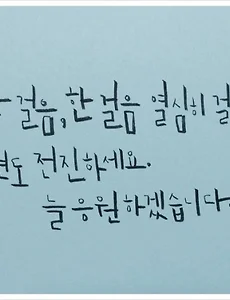 걸음, 한 걸음 열심히 걸
전진하세요.
늘 응원하겠습니다.